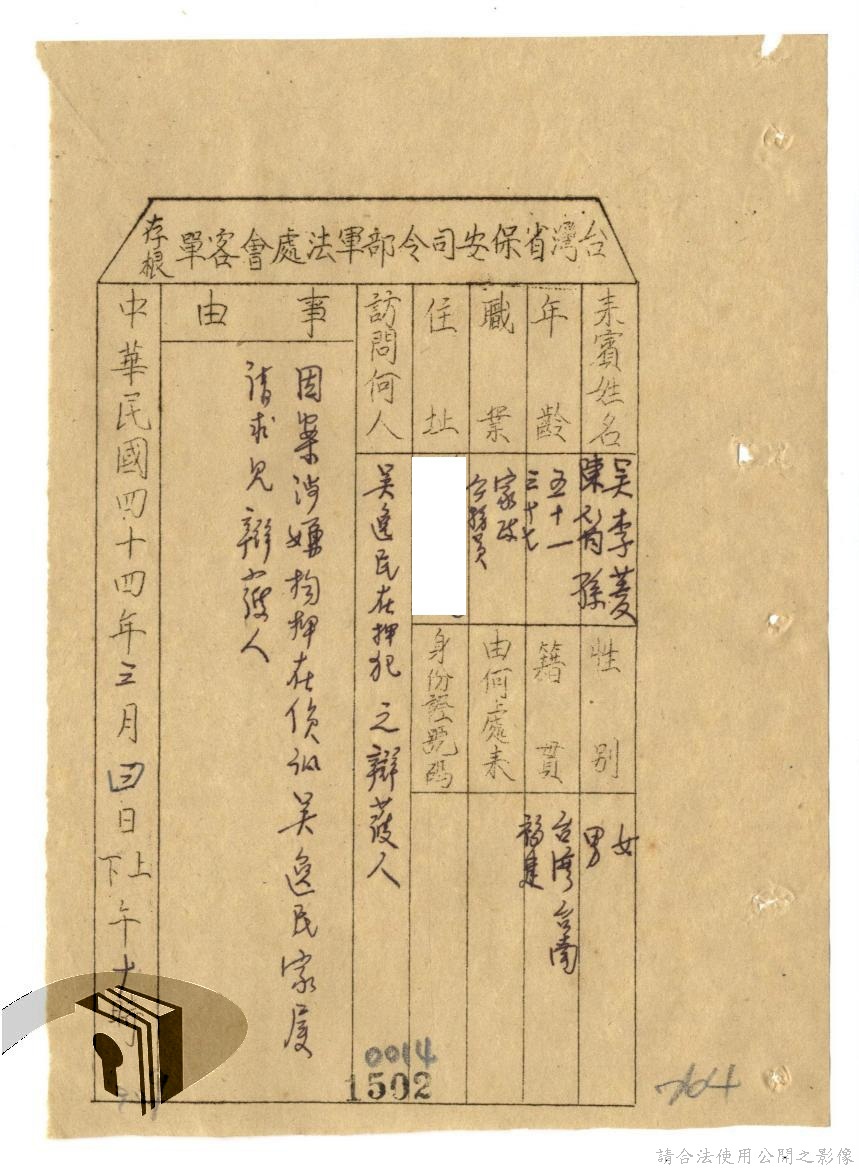 台灣省保安司令部軍法處會客單
存根
來賓姓名
吳李菱
陳翁孫
性別
女
男
年齡
五十一
三十七
籍貫
台灣台南
福建
職業
家政
公務員
由何處來
住址
身份證號碼
訪問何人
吳逸民在押犯之辯護人
事由
因案涉嫌拘押在偵訊吳逸民家屬
請求見辯護人
中華民國四十四年三月四日上下午十時
0014
1502
764
請合法使用公開之影像